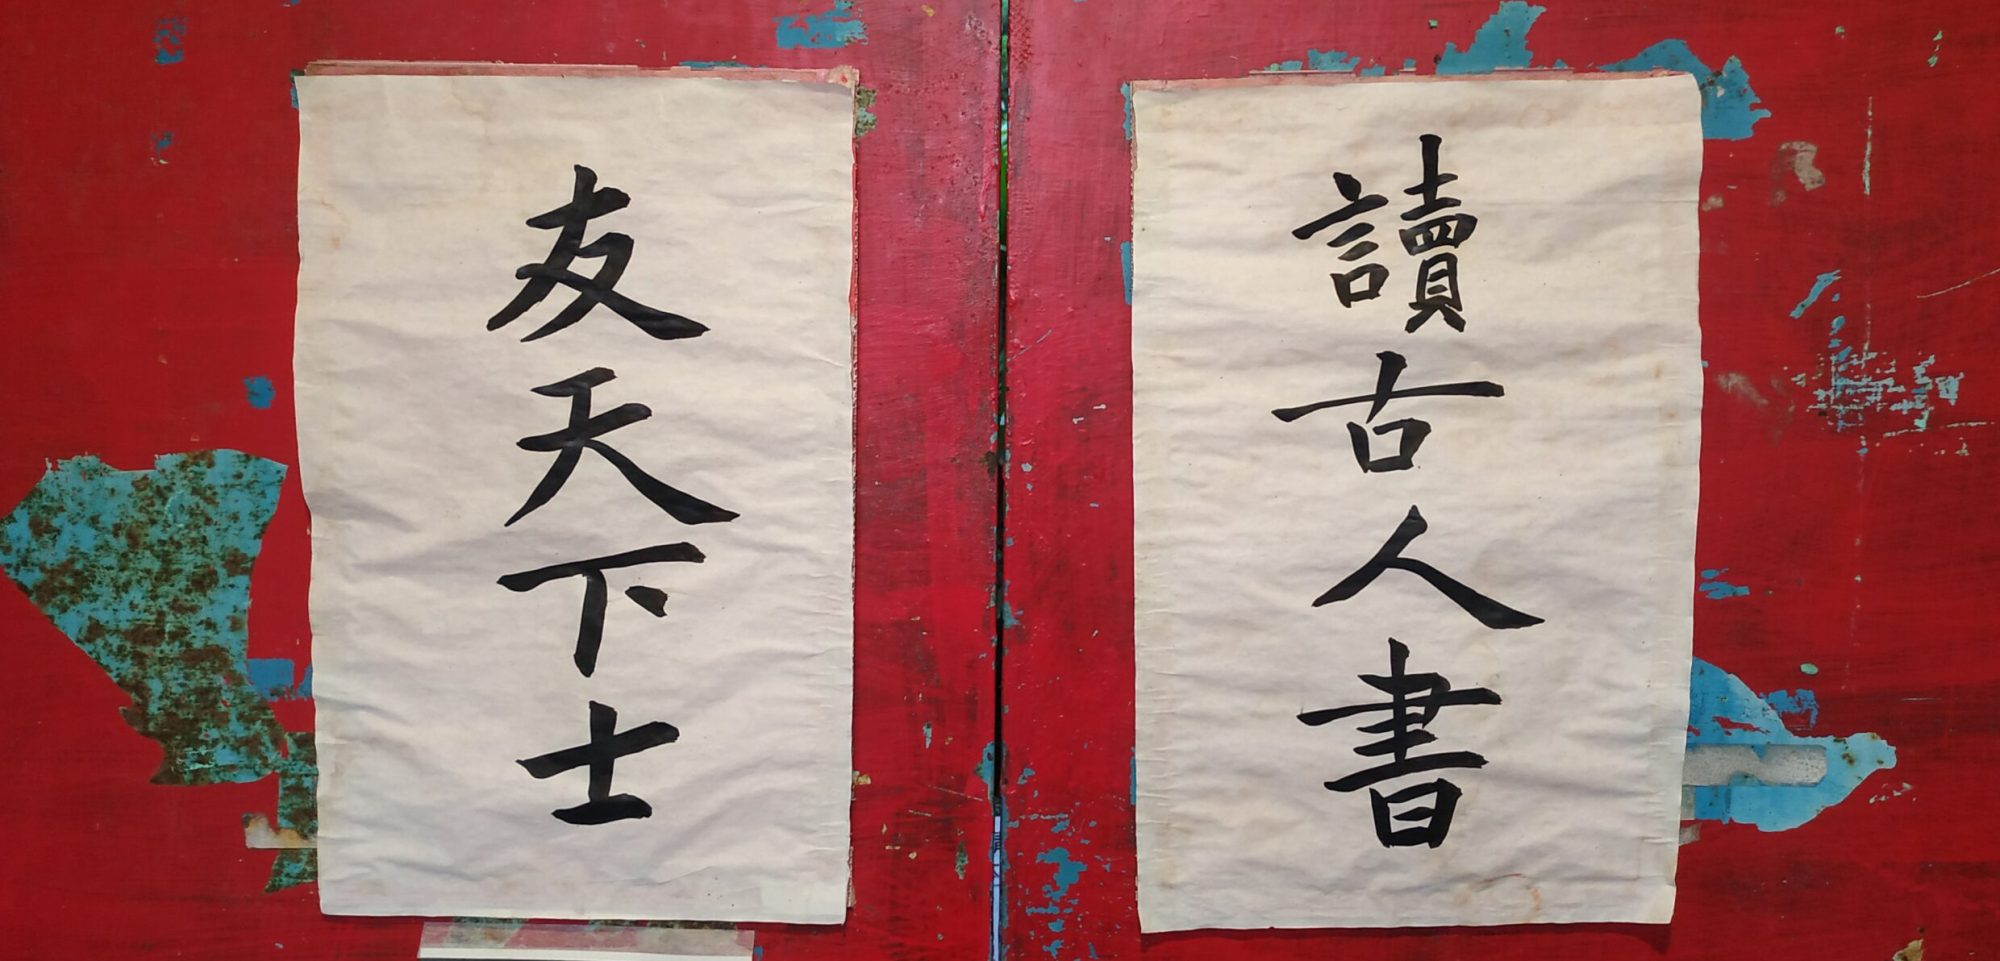 讀古人書
友天下士